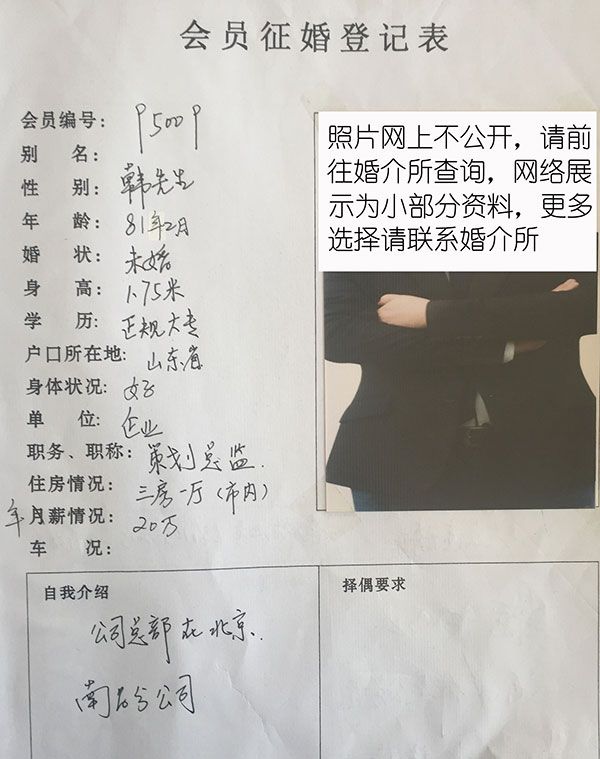 会员征婚登记表
会员编号: 95009
别 名:
性 别: 韩先生
年 龄: 81年2月
婚 状: 未婚
身 高: 1.75米
学 历: 正规大专
户口所在地: 山东省
身体状况: 好
单 位: 企业
职务、职称: 策划总监.
住房情况: 三房一厅(市内)
年月薪情况: 20万
车 况:
照片网上不公开，请前
往婚介所查询，网络展
示为小部分资料，更多
选择请联系婚介所
自我介绍
公司总部在北京.
南 分公司
择偶要求